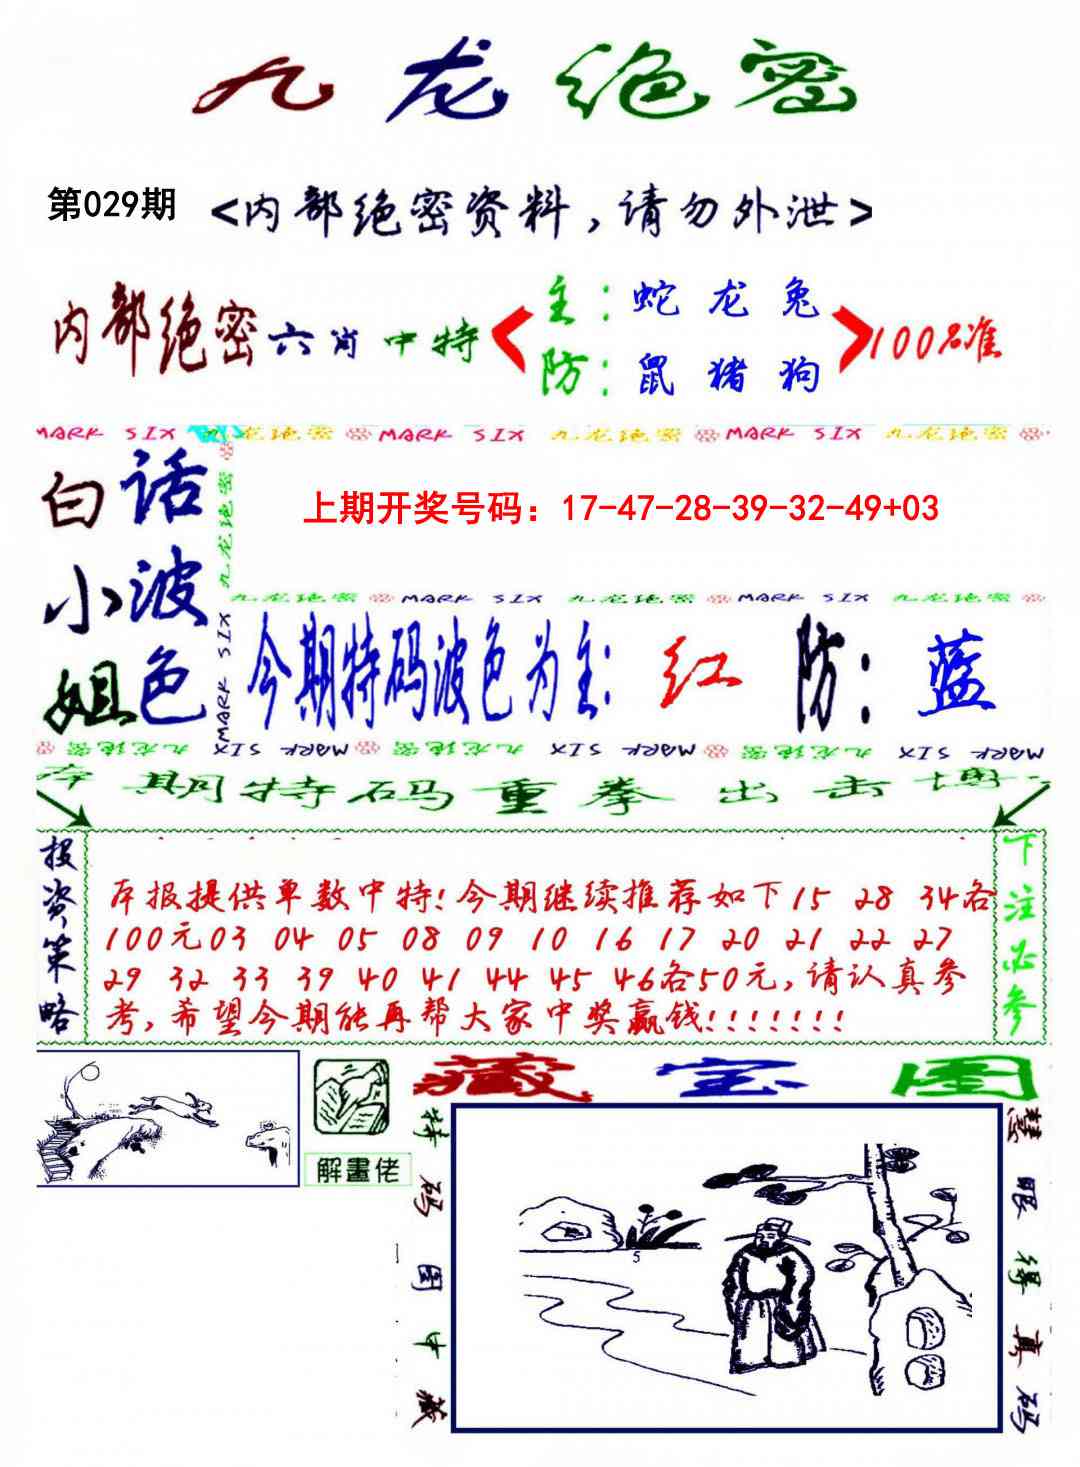 九龙绝密
第029期 <内部绝密资料，请勿外泄>
内部绝密六肖中特
主：蛇 龙 兔
防：鼠 猪 狗
100%准
MARK SIX 九龙绝密 MARK SIX 九龙绝密 MARK SIX 九龙绝密
白话
小波
姐色
九龙绝密
MARK SIX
上期开奖号码：17-47-28-39-32-49+03
九龙绝密 MARK SIX 九龙绝密 MARK SIX 九龙绝密
今期特码波色为主：红 防：蓝
九龙绝密 MARK SIX 九龙绝密 MARK SIX 九龙绝密 MARK SIX
本期特码重拳出击博
投资策略
本报提供单数中特！今期继续推荐如下15 28 34各
100元03 04 05 08 09 10 16 17 20 21 22 27
29 32 33 39 40 41 44 45 46各50元，请认真参
考，希望今期能再帮大家中奖赢钱！！！！！！！
下注必参
解畫佬
藏宝图
特码图中藏
5
慧眼得真码